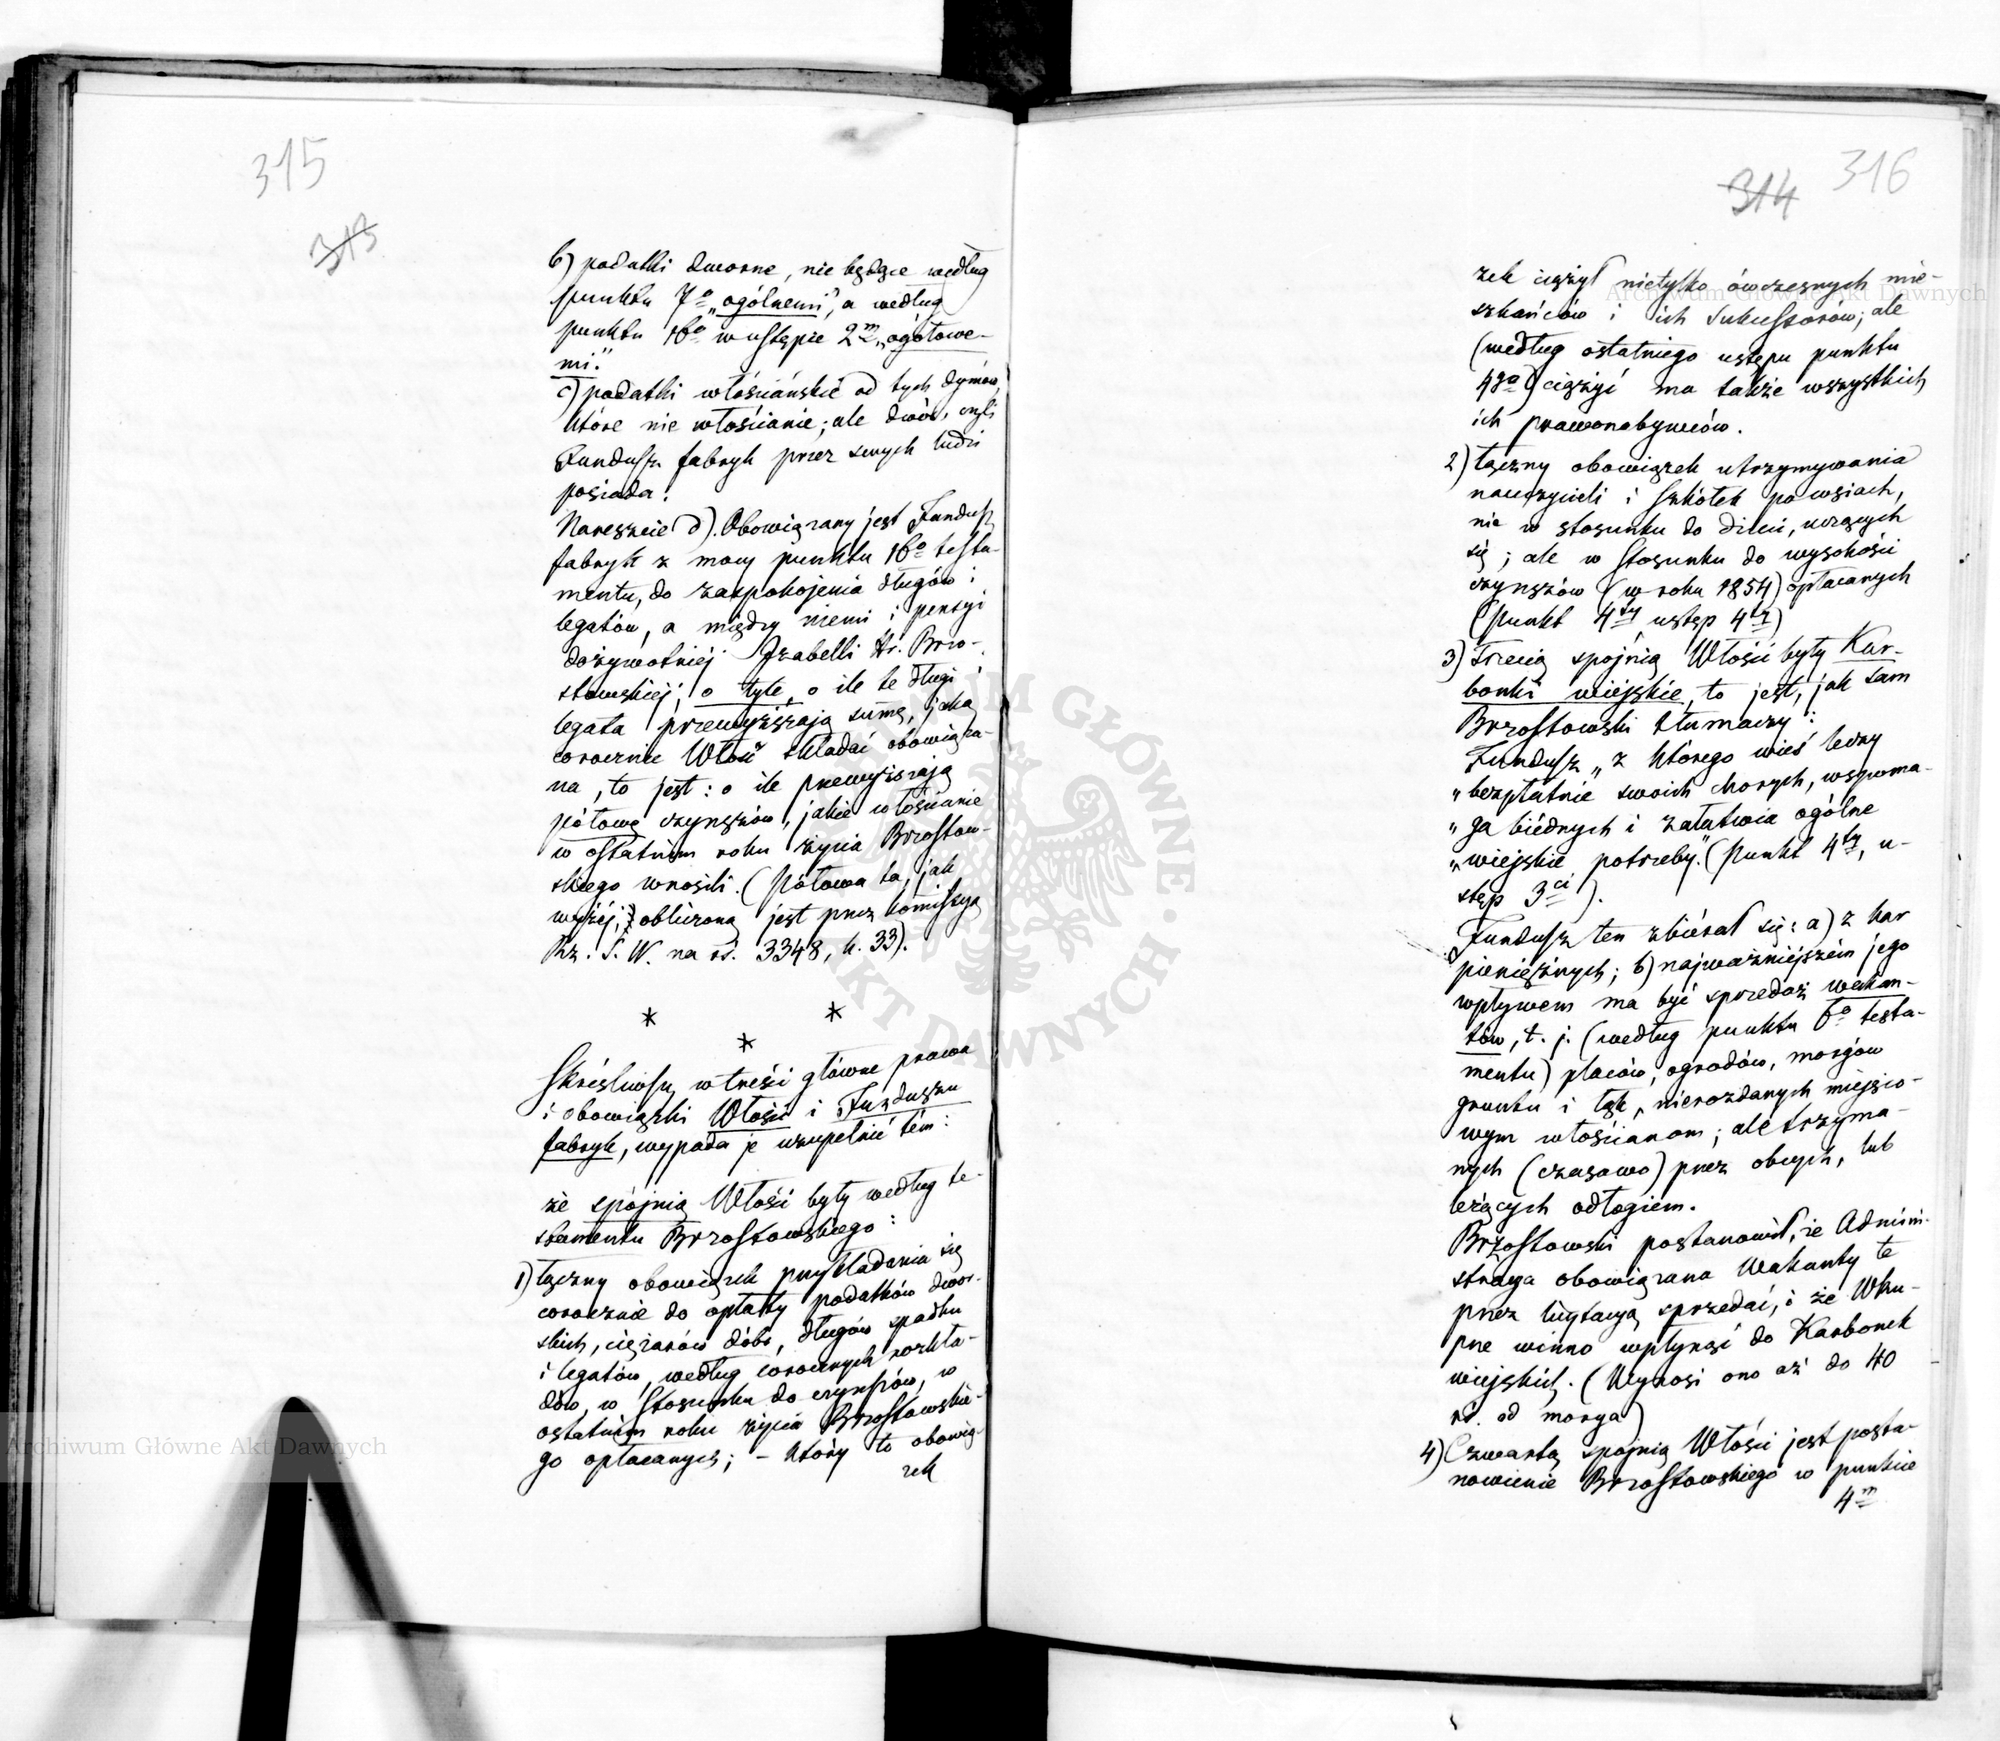 315
313
b) podatki dworne, nie będące według
punktu 7º „ogólnemi", a według
punktu 16º w ustępie 2m „ogółowe-
mi."
c) podatki włościańskie od tych dymów,
które nie włościanie; ale dwór, czyli
Fundusz fabryk przez swych ludzi
posiada.
Nareszcie d). Obowiązany jest Fundusz
fabryk z mocy punktu 16º testa-
mentu, do zaspokojenia długów i
legatów, a między niemi i pensyi
dożywotniej Izabelli Hr. Brzo-
stowskiej, o tyle, o ile te długi i
legata przewyższają sumę, jaką
corocznie Włość składać obowiąza-
na, to jest: o ile przewyższają
połowę czynszów, jakie włościanie
w ostatnim roku życia Brzostow-
skiego wnosili. (Połowa ta, jak
wyżej, obliczoną jest przez Komissyą
Rz. S. W. na rs. 3348, k. 33).
* * *
Skreśliwszy w treści główne prawa
i obowiązki Włości i Funduszu
fabryk, wypada je uzupełnić tém:
że spójnią Włości były według te-
stamentu Brzostowskiego:
1) łączny obowiązek przykładania się
corocznie do opłaty podatków dwor-
skich, ciężarów dóbr, długów spadku
i legatów, według corocznych rozkła-
dów, w stosunku do czynszów, w
ostatnim roku życia Brzostowskie-
go opłacanych; – który to obowią-
zek
314
316
zek ciążył nietylko ówczesnych mie-
szkańców i ich sukcessorów; ale
(według ostatniego ustępu punktu
4go) ciążyć ma także wszystkich
ich prawonabywców.
2) łączny obowiązek utrzymywania
nauczycieli i szkółek po wsiach,
nie w stosunku do dzieci, uczących
się; ale w stosunku do wysokości
czynszów (w roku 1854) opłacanych
(punkt 4ty ustęp 4ty)
3) Trzecią spójnią Włości były Kar-
bonki wiejskie, to jest, jak sam
Brzostowski tłumaczy:
Fundusz „z którego wieś leczy
„bezpłatnie swoich chorych, wspoma-
„ga biédnych i załatwia ogólne
„wiejskie potrzeby." (punkt 4ty, u-
stęp 3ci).
Fundusz ten zbiérał się: a) z kar
pieniężnych; b) najważniejszém jego
wpływem ma być sprzedaż wakan-
tów, t. j. (według punktu 6º testa-
mentu) placów, ogrodów, morgów
gruntu i łąk, nierozdanych miejsco-
wym włościanom; ale trzyma-
nych (czasowo) przez obcych, lub
leżących odłogiem.
Brzostowski postanowił, że Admini-
stracya obowiązana Wakanty te
przez licytacyą sprzedać, i że Wku-
pne winno wpłynąć do Karbonek
wiejskich. (Wynosi ono aż do 40
rs. od morga)
4) Czwartą spójnią Włości jest posta-
nowienie Brzostowskiego w punkcie
4m
Archiwum Główne Akt Dawnych
Archiwum Główne Akt Dawnych
ARCHIWUM GŁÓWNE AKT DAWNYCH